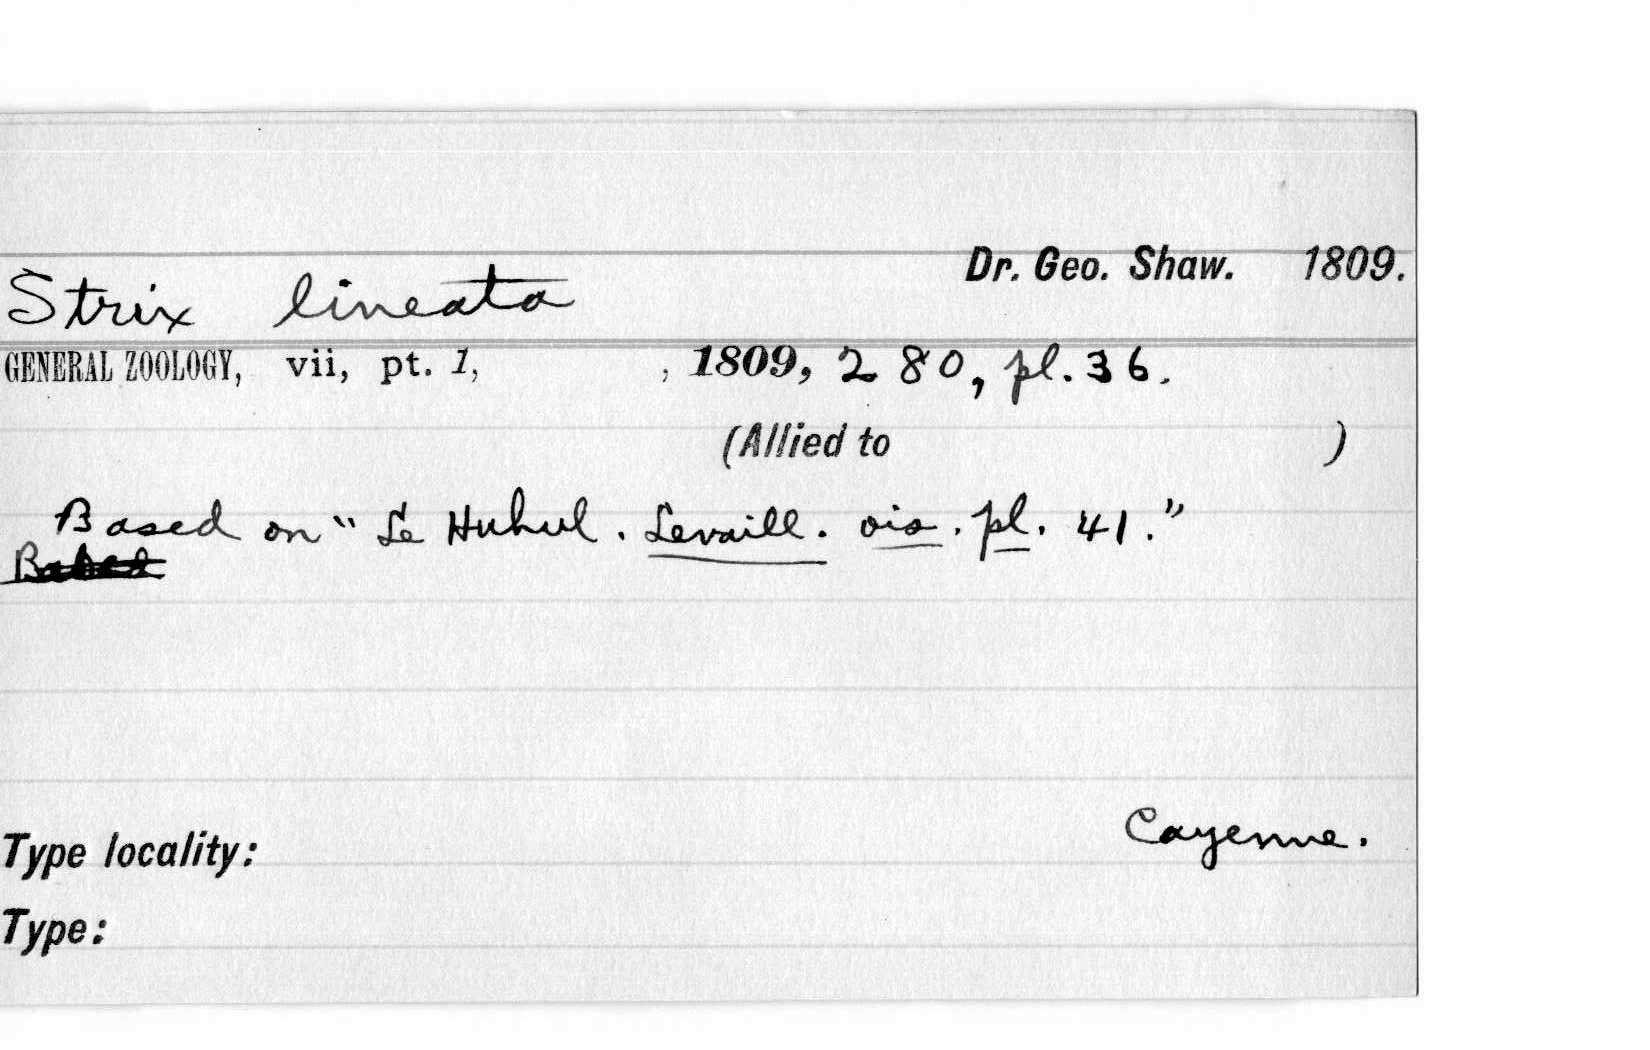 Dr. Geo. Shaw. 1809.
Strix lineata
GENERAL ZOOLOGY, vii, pt. 1, , 1809, 280, pl. 36.
(Allied to )
Based on "Le Huhul. Levaill. ois. pl. 41."
Type locality: Cayenne.
Type: